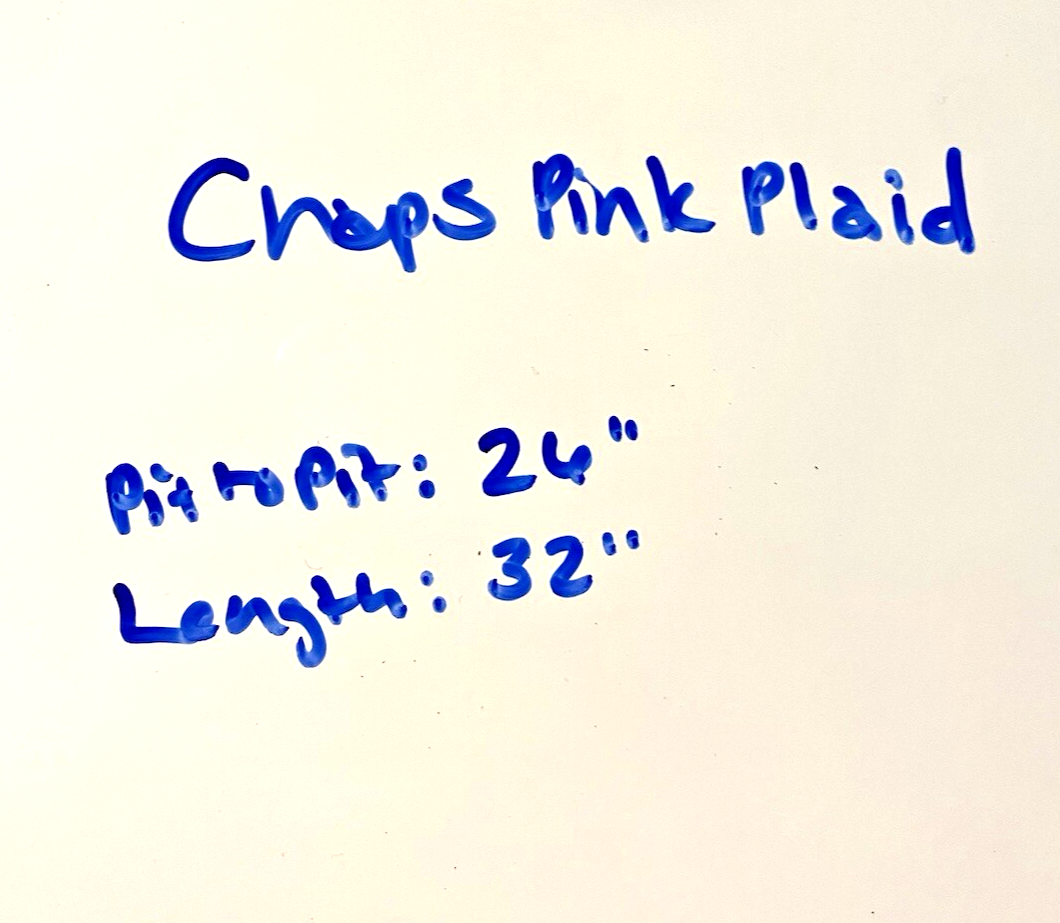 Chaps Pink Plaid
Pit to Pit: 24"
Length: 32"